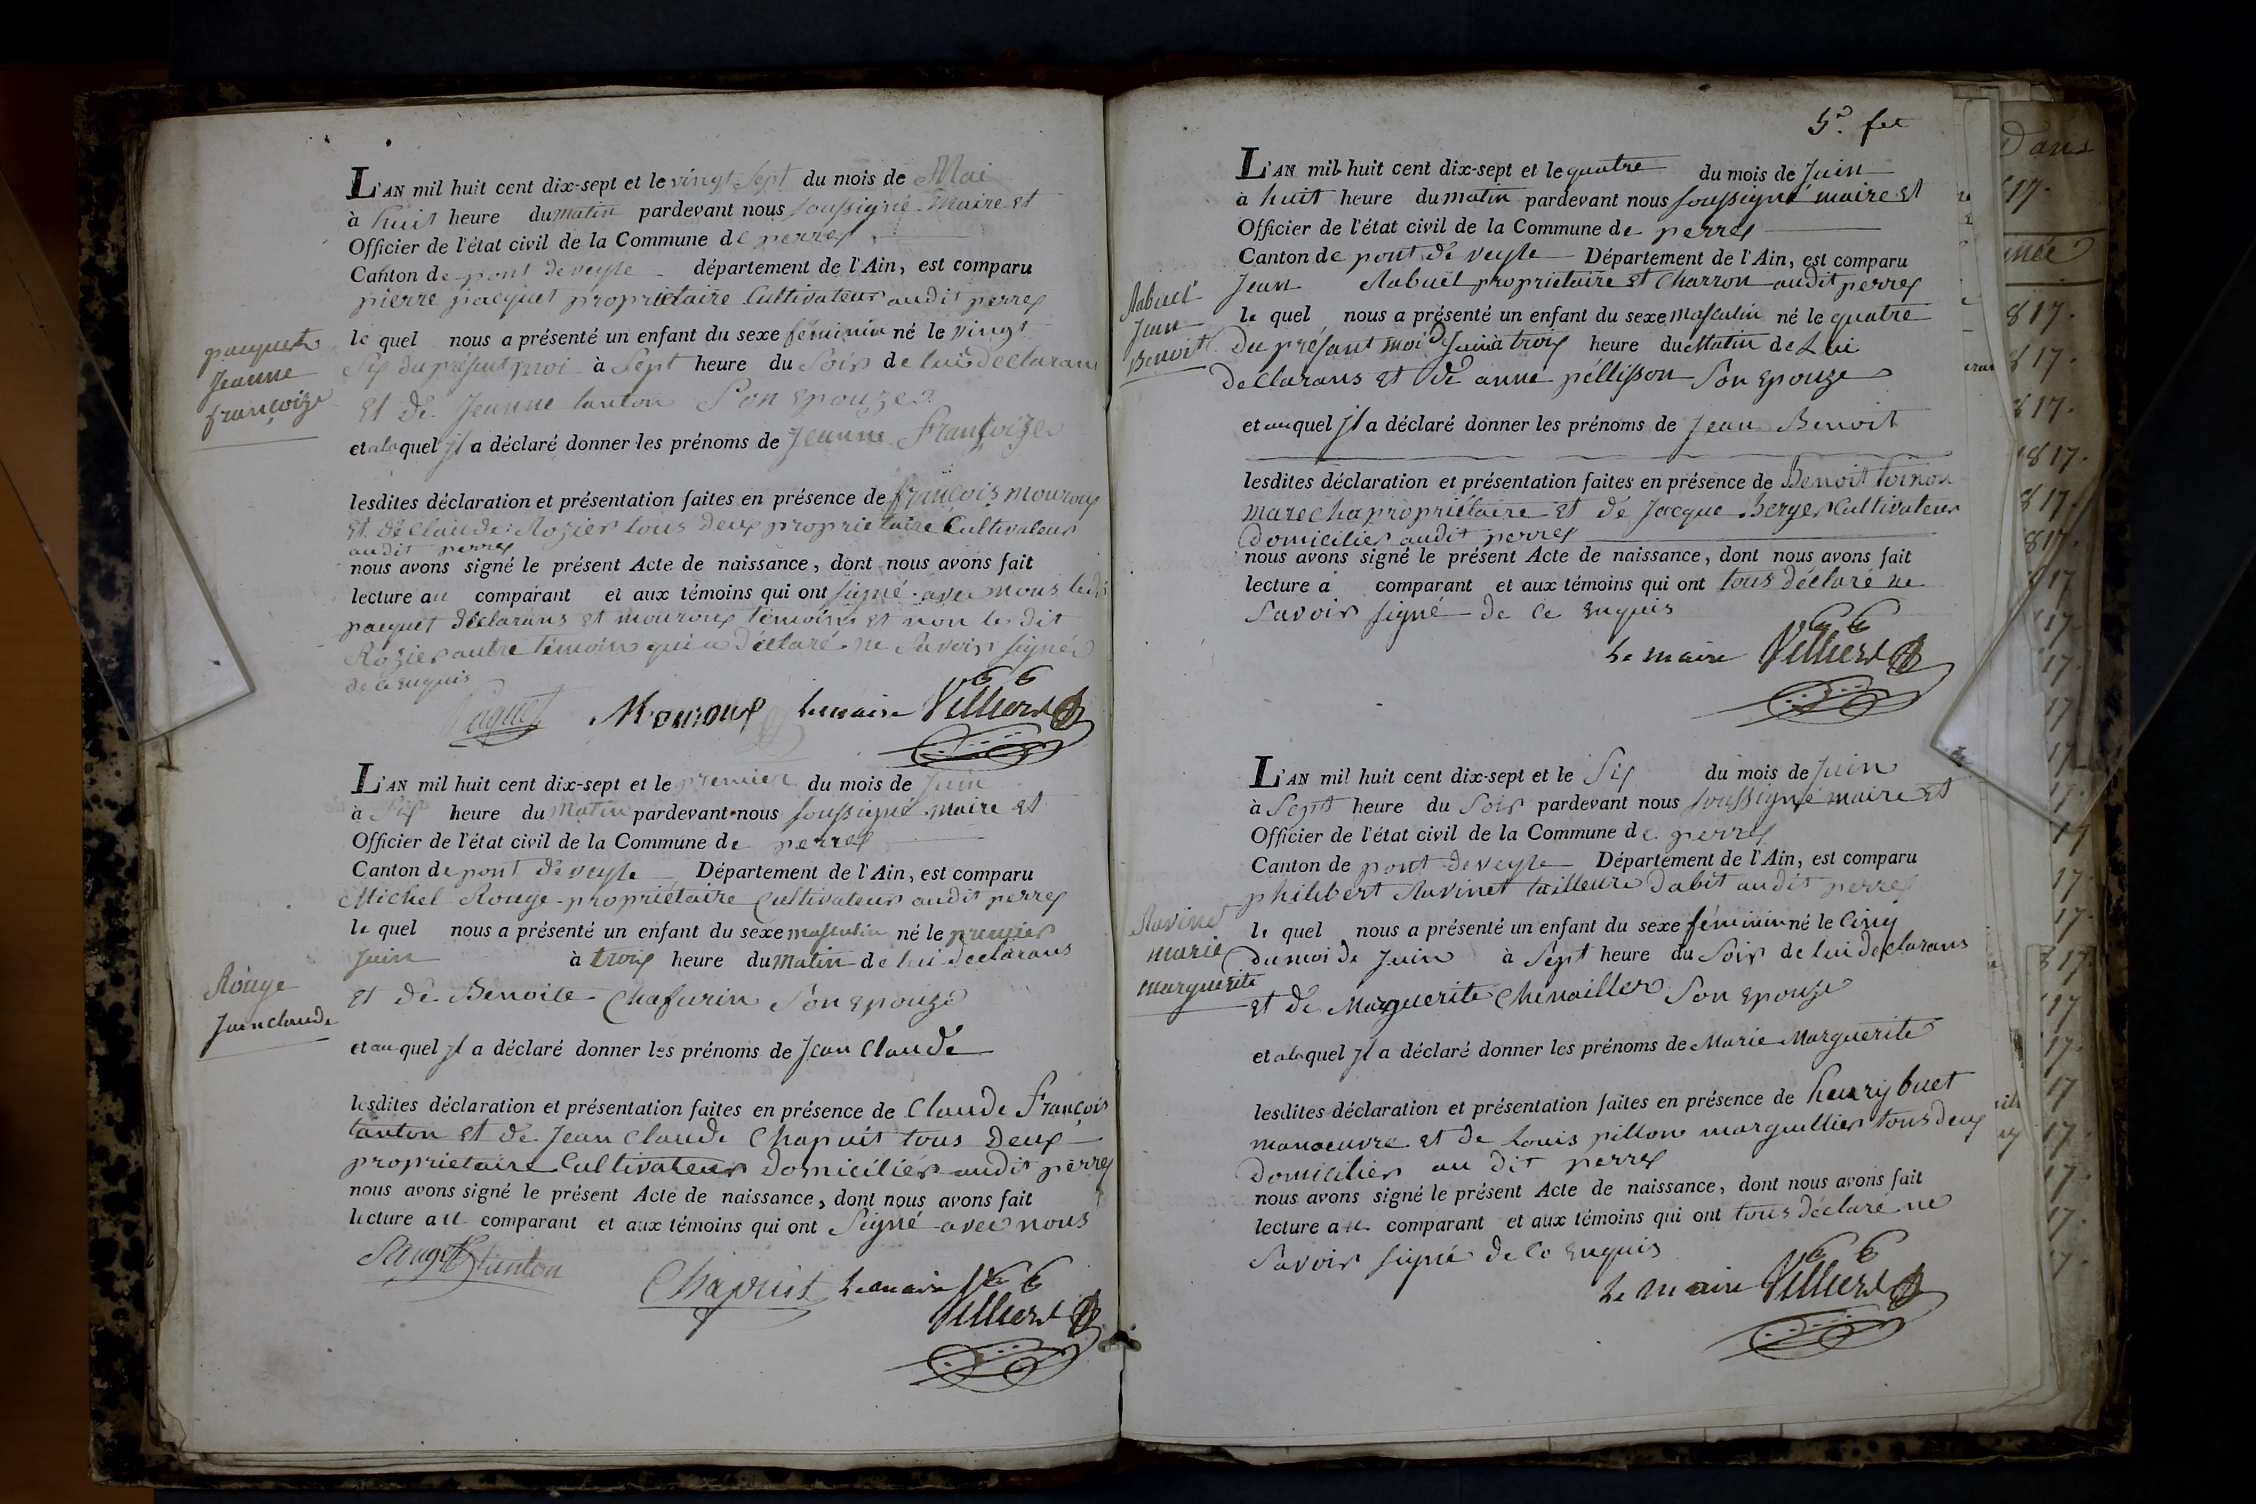 pacquet
Jeanne
françoize
L'AN mil huit cent dix-sept et le vingt Sept du mois de Mai
à huit heure du matin pardevant nous soussigné Maire et
Officier de l'état civil de la Commune de perrex
Canton de pont de veyle département de l'Ain, est comparu
pierre pacquet propriétaire Cultivateur audit perrex
le quel nous a présenté un enfant du sexe féminin né le vingt
Six du présent moi à Sept heure du Soir de lui déclarans
et de Jeanne tanton Son epouze
et alaquel jl a déclaré donner les prénoms de Jeanne Françoize
lesdites déclaration et présentation faites en présence de françois mouroux
et de Claude Rozier tous deux propriétaire Cultivateur
audit perrex
nous avons signé le présent Acte de naissance, dont nous avons fait
lecture au comparant et aux témoins qui ont signé avec nous ledit
pacquet déclarans et mouroux témoins et non le dit
Rozier autre témoins qui a déclaré ne Savoir signé
de ce enquis
Paquet Mouroux le maire Villierd
Rouge
Jean claude
L'AN mil huit cent dix-sept et le premier du mois de Juin
à Six heure du Matin pardevant nous soussigné maire et
Officier de l'état civil de la Commune de perrex
Canton de pont de veyle Département de l'Ain, est comparu
Michel Rouge propriétaire Cultivateur audit perrex
le quel nous a présenté un enfant du sexe masculin né le premier
Juin à trois heure du Matin de lui déclarans
et de Benoite Chafurin Son epouze
et auquel jl a déclaré donner les prénoms de Jean Claude
lesdites déclaration et présentation faites en présence de Claude François
tanton et de Jean Claude Chapuit tous Deux
propriétaire Cultivateur domiciliés audit perrex
nous avons signé le présent Acte de naissance, dont nous avons fait
lecture au comparant et aux témoins qui ont Signé avec nous
tanton
Chapuit le maire Villierd
Rabuel
Jean
Benoit
L'AN mil huit cent dix-sept et le quatre du mois de Juin
à huit heure du matin pardevant nous soussigné maire et
Officier de l'état civil de la Commune de perrex
Canton de pont de veyle Département de l'Ain, est comparu
Jean Rabuel propriétaire et Charron audit perrex
le quel nous a présenté un enfant du sexe masculin né le quatre
du présant moi de Juin à trois heure du Matin de Lui
déclarans et de anne péllisson Son epouze
et auquel jl a déclaré donner les prénoms de Jean Benoit
lesdites déclaration et présentation faites en présence de Benoit
marecha propriétaire et de Jacque Berger Cultivateur
domiciliés audit perrex
nous avons signé le présent Acte de naissance, dont nous avons fait
lecture a comparant et aux témoins qui ont tous déclaré ne
Savoir signé de ce enquis
le maire Villierd
Ravinet
marie
marguerite
L'AN mil huit cent dix-sept et le Six du mois de Juin
à Sept heure du Soir pardevant nous soussigné maire et
Officier de l'état civil de la Commune de perrex
Canton de pont de veyle Département de l'Ain, est comparu
philibert Ravinet tailleure dabit audit perrex
le quel nous a présenté un enfant du sexe féminin né le Cinq
du moi de Juin à Sept heure du Soir de lui déclarans
et de Marguerite Chenailler Son epouze
et alaquel jl a déclaré donner les prénoms de Marie Marguerite
lesdites déclaration et présentation faites en présence de henry buet
manoeuvre et de Louis pillon marguillier tous deux
domiciliés au dit perrex
nous avons signé le présent Acte de naissance, dont nous avons fait
lecture au comparant et aux témoins qui ont tous déclaré ne
Savoir signé de Ce enquis
le maire Villierd